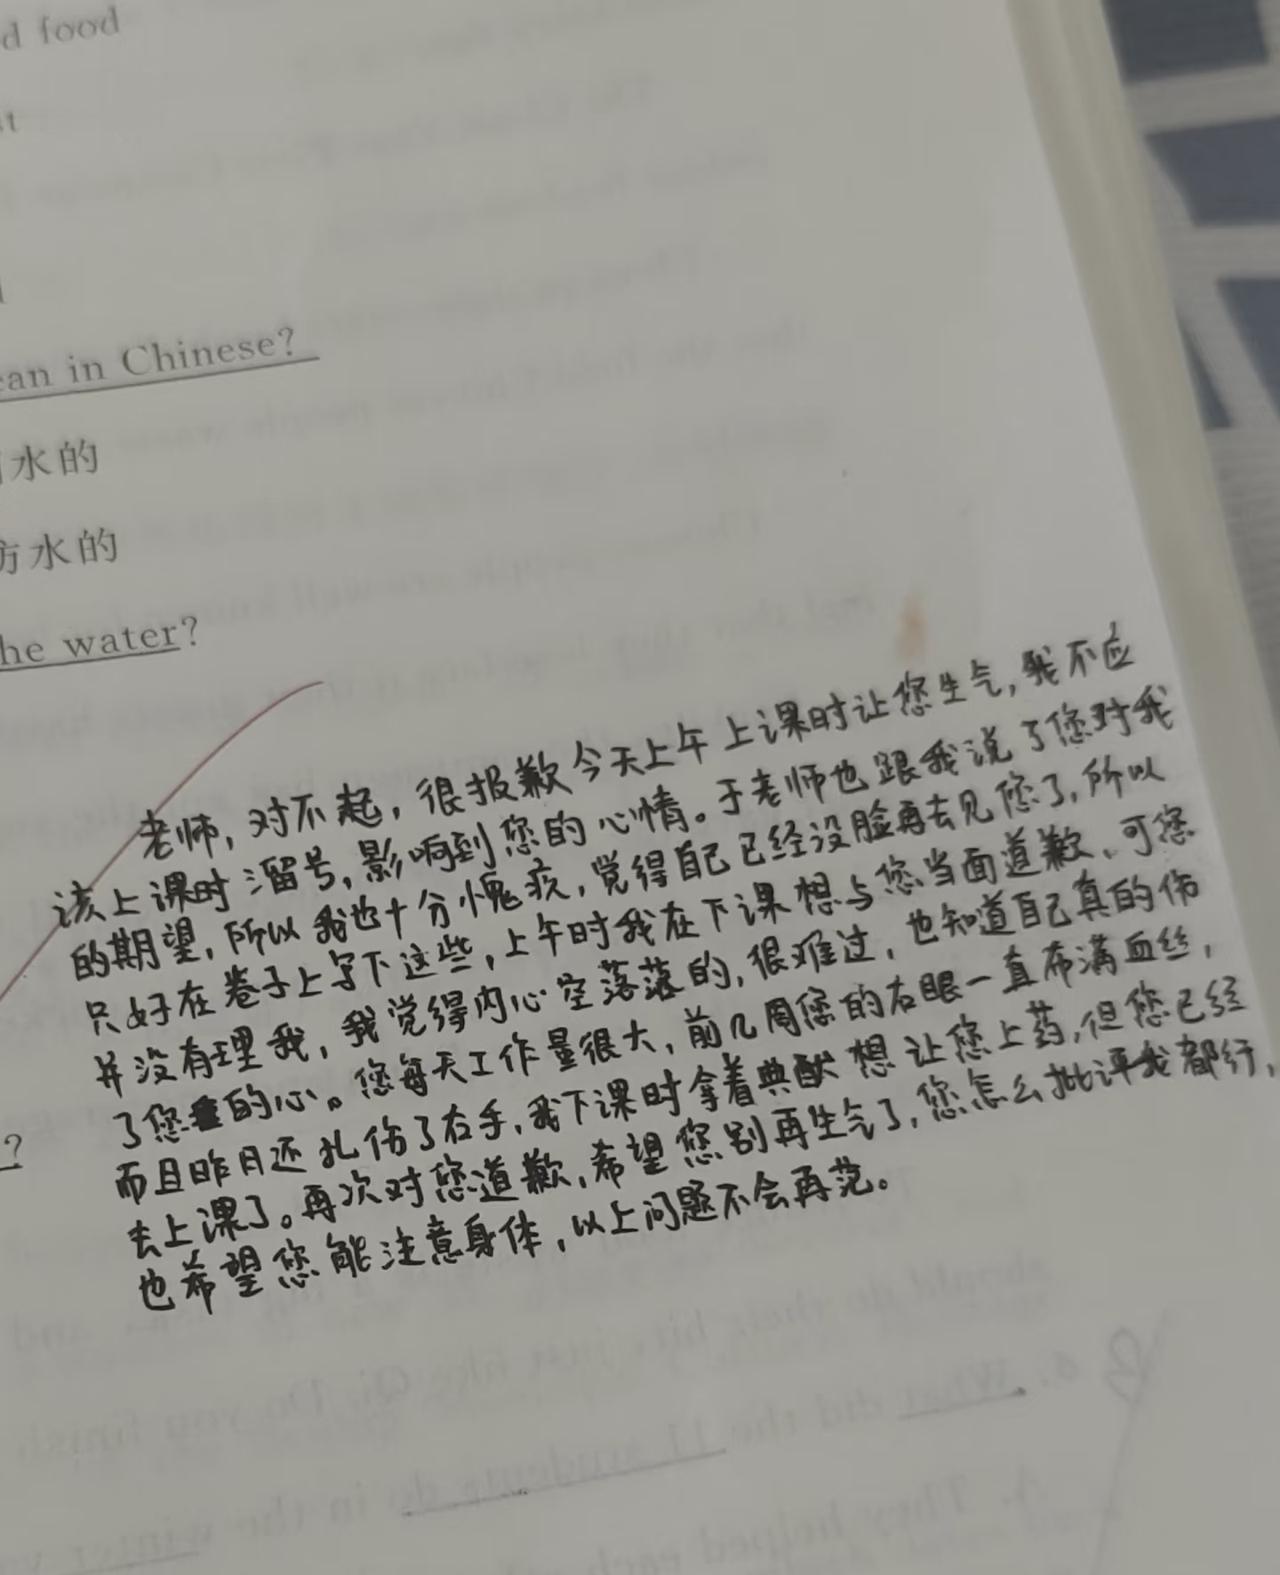 d food
an in Chinese?
水的
防水的
he water?
老师,对不起,很报歉今天上午上课时让您生气,我不应
该上课时溜号,影响到您的心情。于老师也跟我说了您对我
的期望,所以我也十分愧疚,觉得自己已经没脸再去见您了,所以
只好在卷子上写下这些,上午时我在下课想与您当面道歉、可您
并没有理我,我觉得内心空落落的,很难过,也知道自己真的伤
了您的心。您每天工作量很大,前几周您的右眼一直布满血丝,
而且昨日还扎伤了右手,我下课时拿着典酞想让您上药,但您已经
去上课了。再次对您道歉,希望您别再生气了,您怎么批评我都行,
也希望您能注意身体,以上问题不会再范。
?